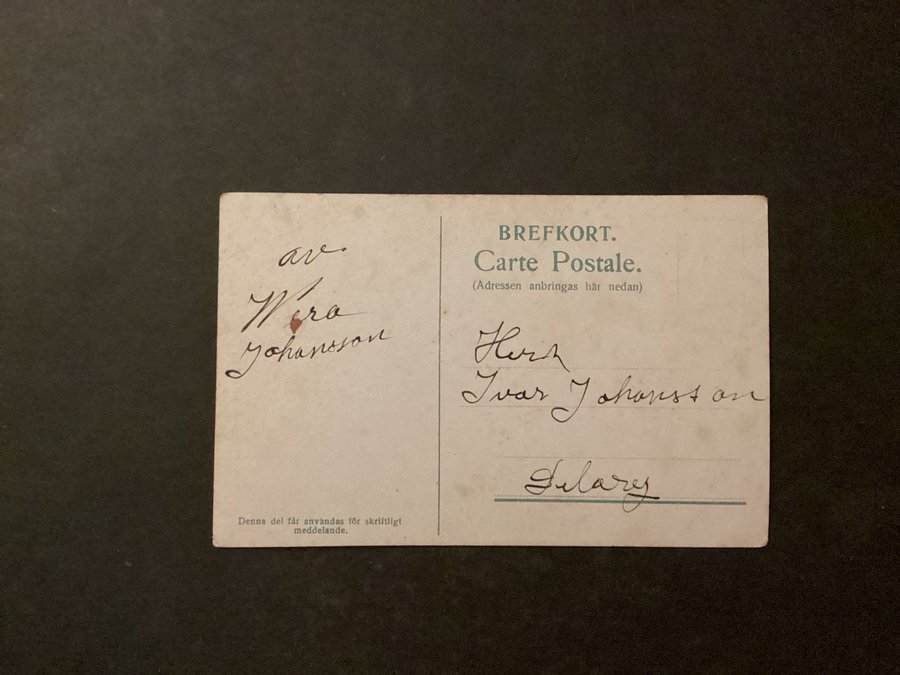 av
Wera
Johansson
Denna del får användas för skriftligt
meddelande.
BREFKORT.
Carte Postale.
(Adressen anbringas här nedan)
Herr
Ivar Johansson
Delarey